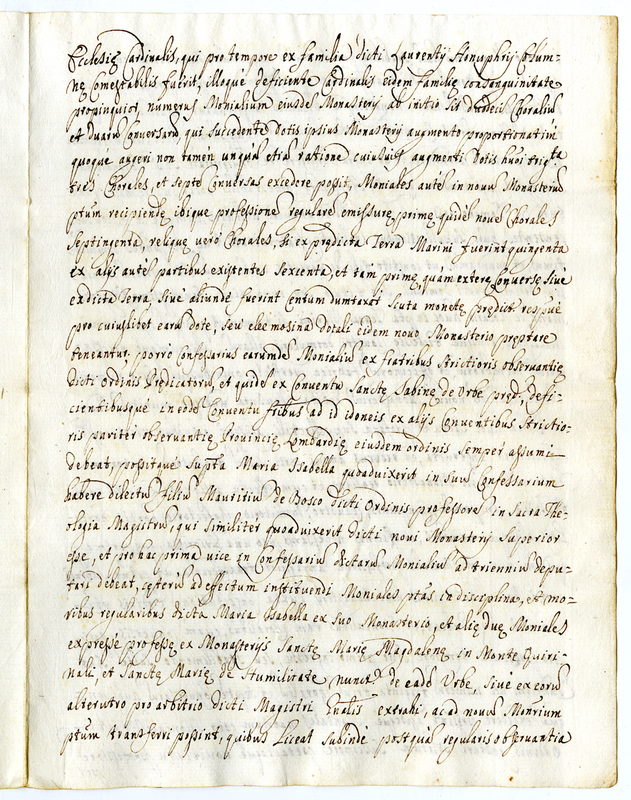 Ecclesię Cardinalis, qui pro tempore ex familia dicti Laurentij Honuphrij Colum-
nę Comestabilis fuerit, illoque deficiente Cardinalis eidem familię consanguinitate
propinquior, numerus Monialium eiusdẽ Monasterij ab initio sit duodecim Choraliũ
et duarũ Conversarũ, qui succedente dotis ipsius Monasterij augmento proportionatim
quoque augeri non tamen unquã etiã ratione cuiusuis augmenti dotis hmoi trigta
tres Chorales, et septẽ Conversas excedere possit, Moniales autẽ in nouũ Monasteriũ
ptum recipiendę ibique professionẽ regularẽ emissurę, primę quidẽ nouẽ Chorales
septingenta, reliquę uerò Chorales, si ex prędicta Terra Marini fuerint quingenta
ex alijs autẽ partibus existentes sexcenta, et tam primę, quàm exterę Conversę siue
ex dicta Terra, siue aliundè fuerint centum dumtaxat scuta monetę prędict. respuè
pro cuiuslibet earũ dote, seu eleemosina dotali eidem nouo Monasterio pręstare
teneantur. porrò Confessarius earumdẽ Monialiũ ex fratribus strictioris observantię
dicti ordinis Prędicatorũ, et quidẽ ex Conventu Sanctę Sabinę de Urbe pręd., defi-
cientibusquè in eodẽ Conventu fribus ad id idoneis ex alijs Conventibus strictio-
ris paritèr observantię Provincię Lombardię eiusdem ordinis semper assumi
debeat, possitquè supta Maria Isabella quoaduixerit in suũ Confessarium
habere dilectũ filiũ Mauritiũ de Bosco dicti ordinis professorẽ in sacra The-
ologia Magistrũ, qui similitèr quoaduixerit dicti noui Monasterij Superior
esse, et pro hac prima uice in Confessariũ dictarũ Monialiũ ad triennium depu-
tari debeat, cęterũ ad effectum instituendi Moniales ptas in disciplina, et mo-
ribus regularibus dicta Maria Isabella ex suo Monasterio, et alię duę Moniales
expressè professę ex Monasterijs Sanctę Marię Magdalenę in Monte Quiri-
nali, et Sanctę Marię de Humilitate nuncup. de eadẽ Urbe, siue ex eorũ
alterutro pro arbitrio dicti Magistri Gnalis extrahi, ac ad nouũ Monrium
ptum transferri possint, quibus liceat subindè postquã regularis observantia